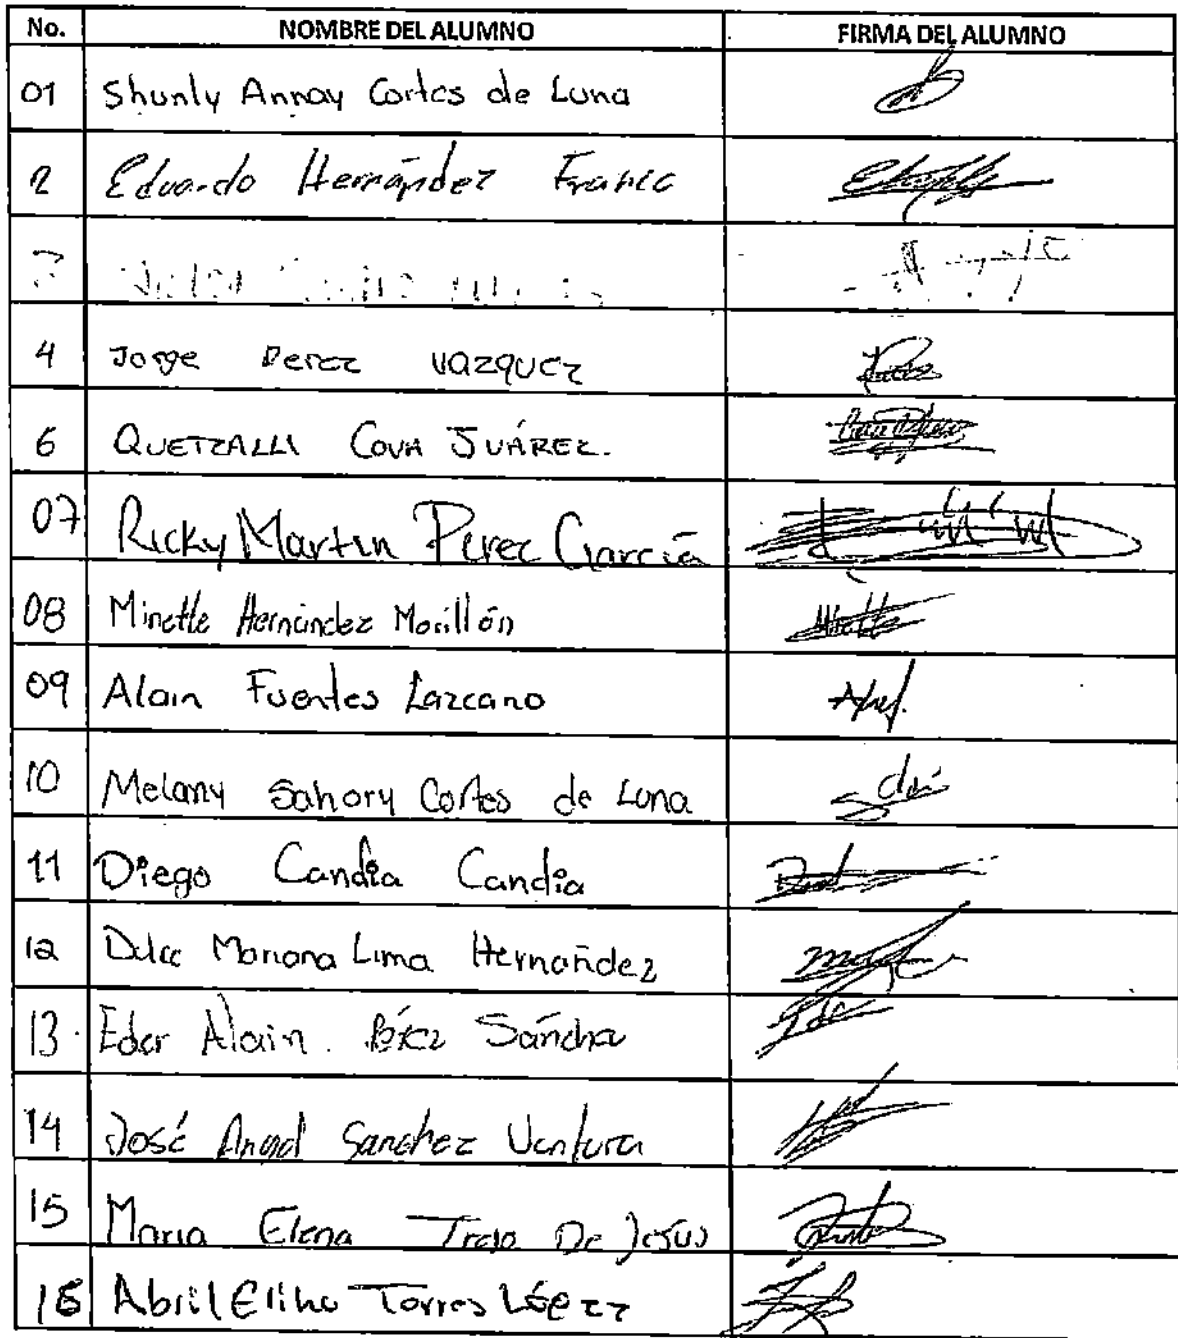 No. NOMBRE DEL ALUMNO FIRMA DEL ALUMNO
01 Shunly Annay Cortes de Luna
2 Eduardo Hernández Franco
4 Jorge Perez Vazquez
6 QUETZALLI COVA JUÁREZ.
07 Ricky Martin Perez García
08 Minette Hernández Morillón
09 Alain Fuentes Lazcano
10 Melany Sahory Cortes de Luna
11 Diego Candia Candia
12 Dulce Mariana Lima Hernández
13. Eder Alain. Pérez Sánchez
14 José Angel Sanchez Ventura
15 Maria Elena Trejo De Jesús
16 Abril Torres López